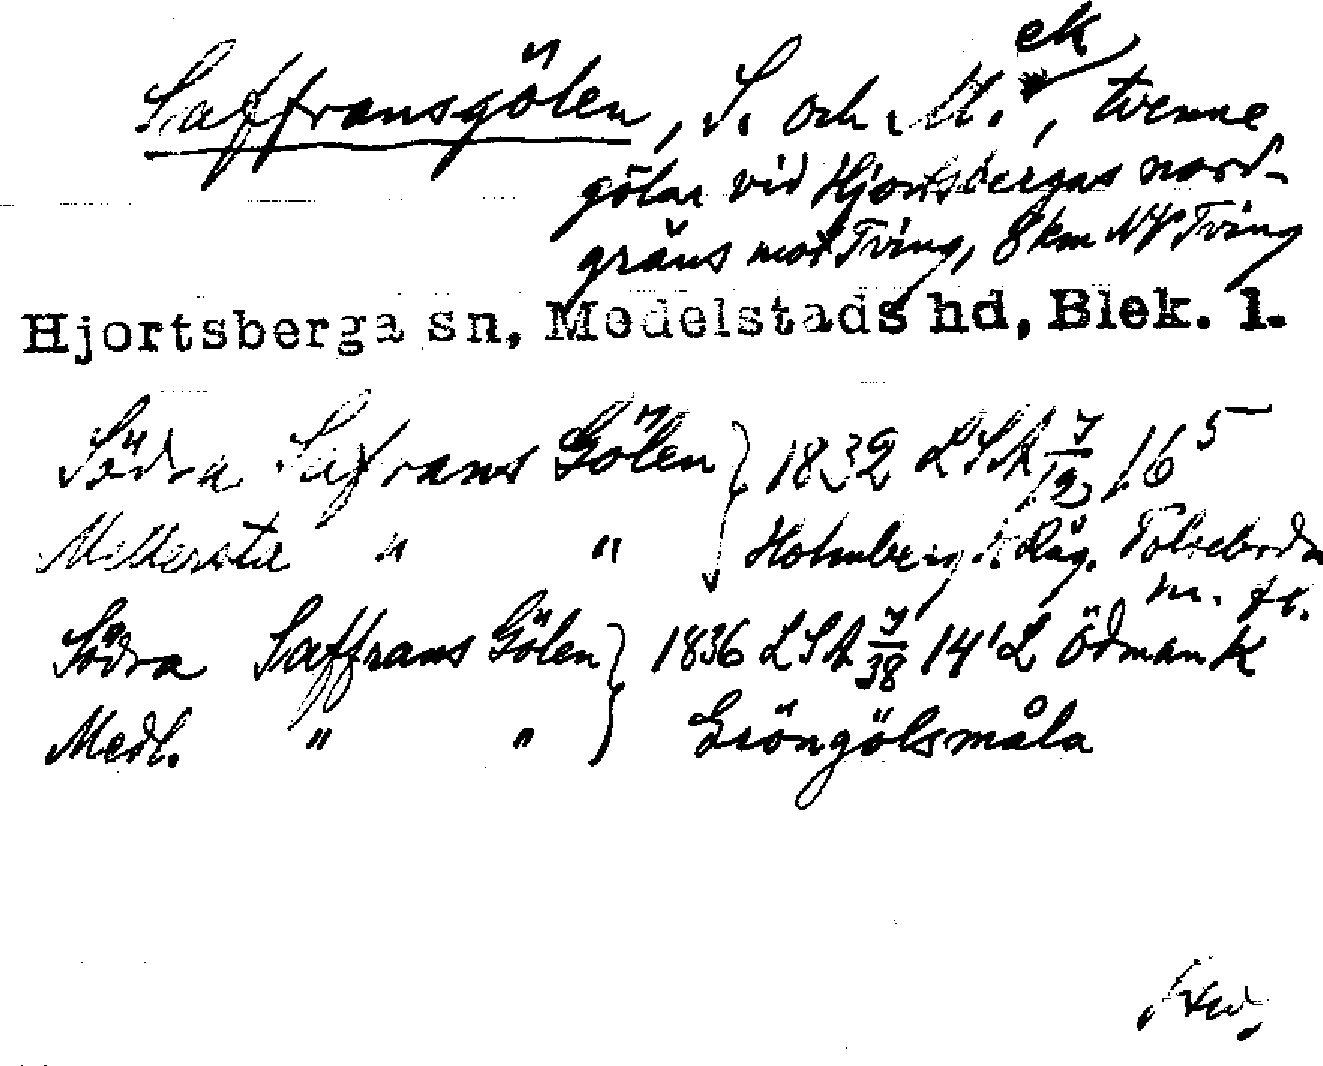 ek
Saffransgölen, S. och M., tvenne
gölar vid Hjortsbergas nord-
gräns mot Tving, 8 km NV Tving
Hjortsberga sn, Medelstads hd, Blek. l.
Södra Safrans Gölen } 1832 LSA 7/12 16 5
Mellersta " " Holmberg Råg. Tolseboda
m. fl.
Södra Saffrans Gölen } 1836 LSA 7/38 14' L Ödman K
Medl. " " Gröngölsmåla